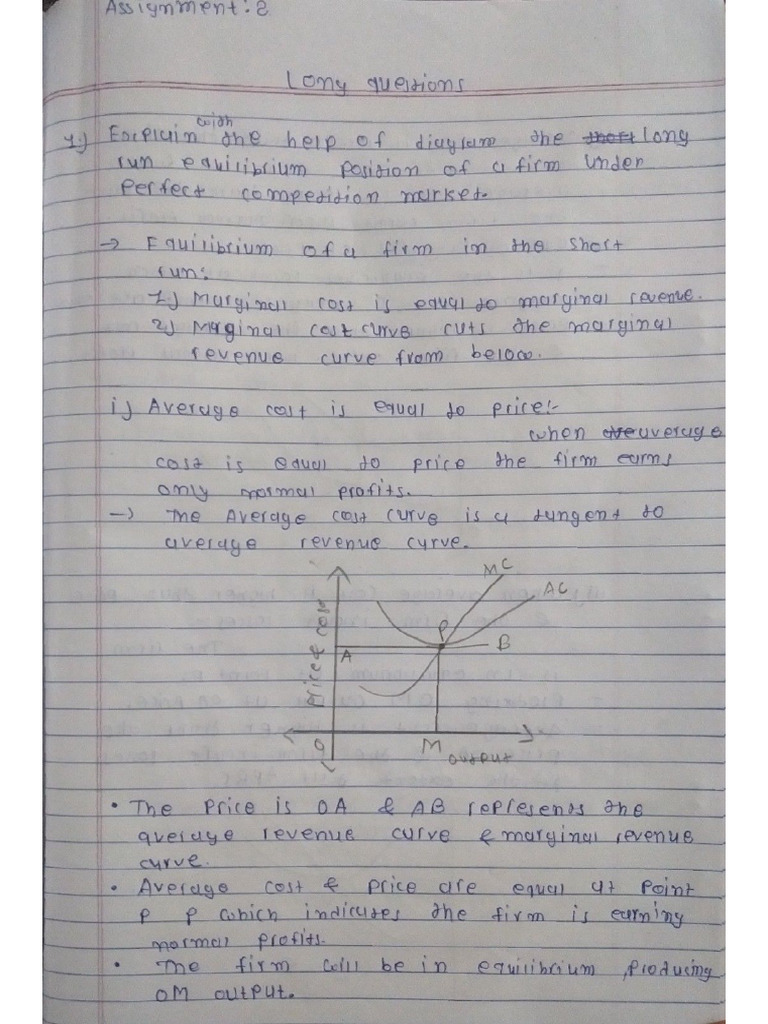 Assignment: 2
Long questions
1.) Explain with the help of diagram the short long
run equilibrium position of a firm under
perfect competition market.
→ Equilibrium of a firm in the short
run:
1.) Marginal cost is equal to marginal revenue.
2.) Marginal cost curve cuts the marginal
revenue curve from below.
i) Average cost is equal to price:-
when the average
cost is equal to price the firm earns
only normal profits.
→ The Average cost curve is a tangent to
average revenue curve.
MC
AC
P
B
A
Price & cost
O
M
output
• The Price is OA & AB represents the
average revenue curve & marginal revenue
curve.
• Average cost & price are equal at Point
P P which indicates the firm is earning
normal profits.
• The firm will be in equilibrium, producing
OM output.